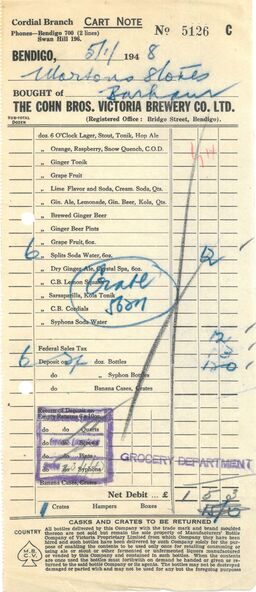 Cordial Branch CART NOTE
Phones—Bendigo 700 (2 lines)
Swan Hill 196.
No 5126 C
BENDIGO, 5/1/ 1948
Mortons Stores
BOUGHT OF Barham
THE COHN BROS. VICTORIA BREWERY CO. LTD.
(Registered Office: Bridge Street, Bendigo).
doz. 6 O'Clock Lager, Stout, Tonik, Hop Ale
„ Orange, Raspberry, Snow Quench, C.O.D.
„ Ginger Tonik
„ Grape Fruit
„ Lime Flavor and Soda, Cream. Soda, Qts.
„ Gin. Ale, Lemonade, Gin. Beer, Kola, Qts.
„ Brewed Ginger Beer
„ Ginger Beer Pints
„ Grape Fruit, 6oz.
6 „ Splits Soda Water, 6oz. 12
„ Dry Ginger Ale, Crystal Spa, 6oz.
„ C.B. Lemon Squash
„ Sarsaparilla, Kola Tonik
„ C.B. Cordials
„ Syphons Soda Water
Crate
12
Federal Sales Tax
6 Deposit on doz. Bottles
do do „ Syphon Bottles
do Banana Cases, Crates
Return of Deposit on
Empty Returns
do do Quarts
do do
do do
do Syphons
GROCERY DEPARTMENT
Banana Cases, Crates
Net Debit .. £ 1 5 3
1 Crates Hampers Boxes
CASKS AND CRATES TO BE RETURNED
COUNTRY
M.B.C.V.
All bottles delivered by this Company with the trade mark and brand moulded
thereon are not sold but remain the sole property of Manufacturers' Bottle
Company of Victoria Proprietary Limited from which Company they have been
hired and such bottles have been delivered by such Company for the purpose of
enabling the contents to be used only once for retailing consuming or
using ale or stout or other fermented or unfermented liquors manufactured
or vended by this Company and contained in such bottles. When the contents
are once used the bottles must forthwith on demand be returned or delivered
to the said bottle Company or its agents. The bottles may not be destroyed
damaged or parted with and may not be used for any but the foregoing purposes